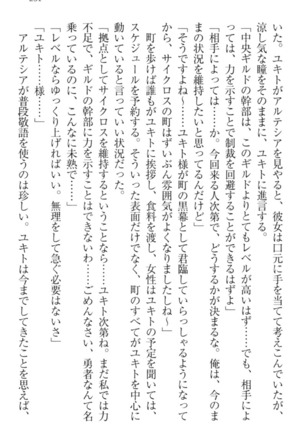 ユキトがアルテシアを見やると、彼女は口に手を当てて考えこんでいたが、
涼し気な瞳をそのままに、ユキトに進言する。
「中央ギルドの幹部は、このギルドよりとてもレベルが高いはず……でも、相手によ
っては、力を示すことで制裁を回避することができるはずよ」
「相手によっては……か。今回来る人次第で、どうするかが決まるな。俺は、今のま
まの状況を維持したいと思ってるんだけど」
「そうですよね～……ユキト様が町の黒幕として君臨していらっしゃるようになって
から、サイクロスの町はずいぶん雰囲気がよくなりましたしね～」
町を歩けば誰もがユキトに挨拶し、食料を渡し、女性はユキトの予定を聞いては、
スケジュールを予約する。そういった表面だけでなく、町のすべてがユキトを中心に
動いていると言っていい状況だった。
「拠点としてサイクロスを維持するということなら……ユキト次第ね。まだ私では力
不足で、ギルドの幹部に力を示すことはできないわ……ごめんなさい、勇者なんて名
乗っているのに、こんなに未熟で……」
「レベルならゆっくり上げればいい。無理をして急ぐ必要はないさ」
「ユキト……様……」
アルテシアが普段敬語を使うのは珍しい。ユキトは今までしてきたことを思えば、